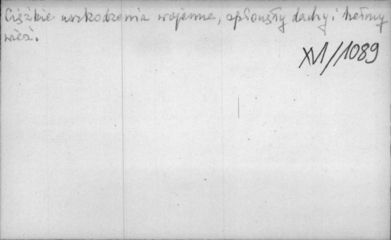 Ciężkie uszkodzenia wojenne, spłonęły dachy i hełmy
wież.
XVI/1089